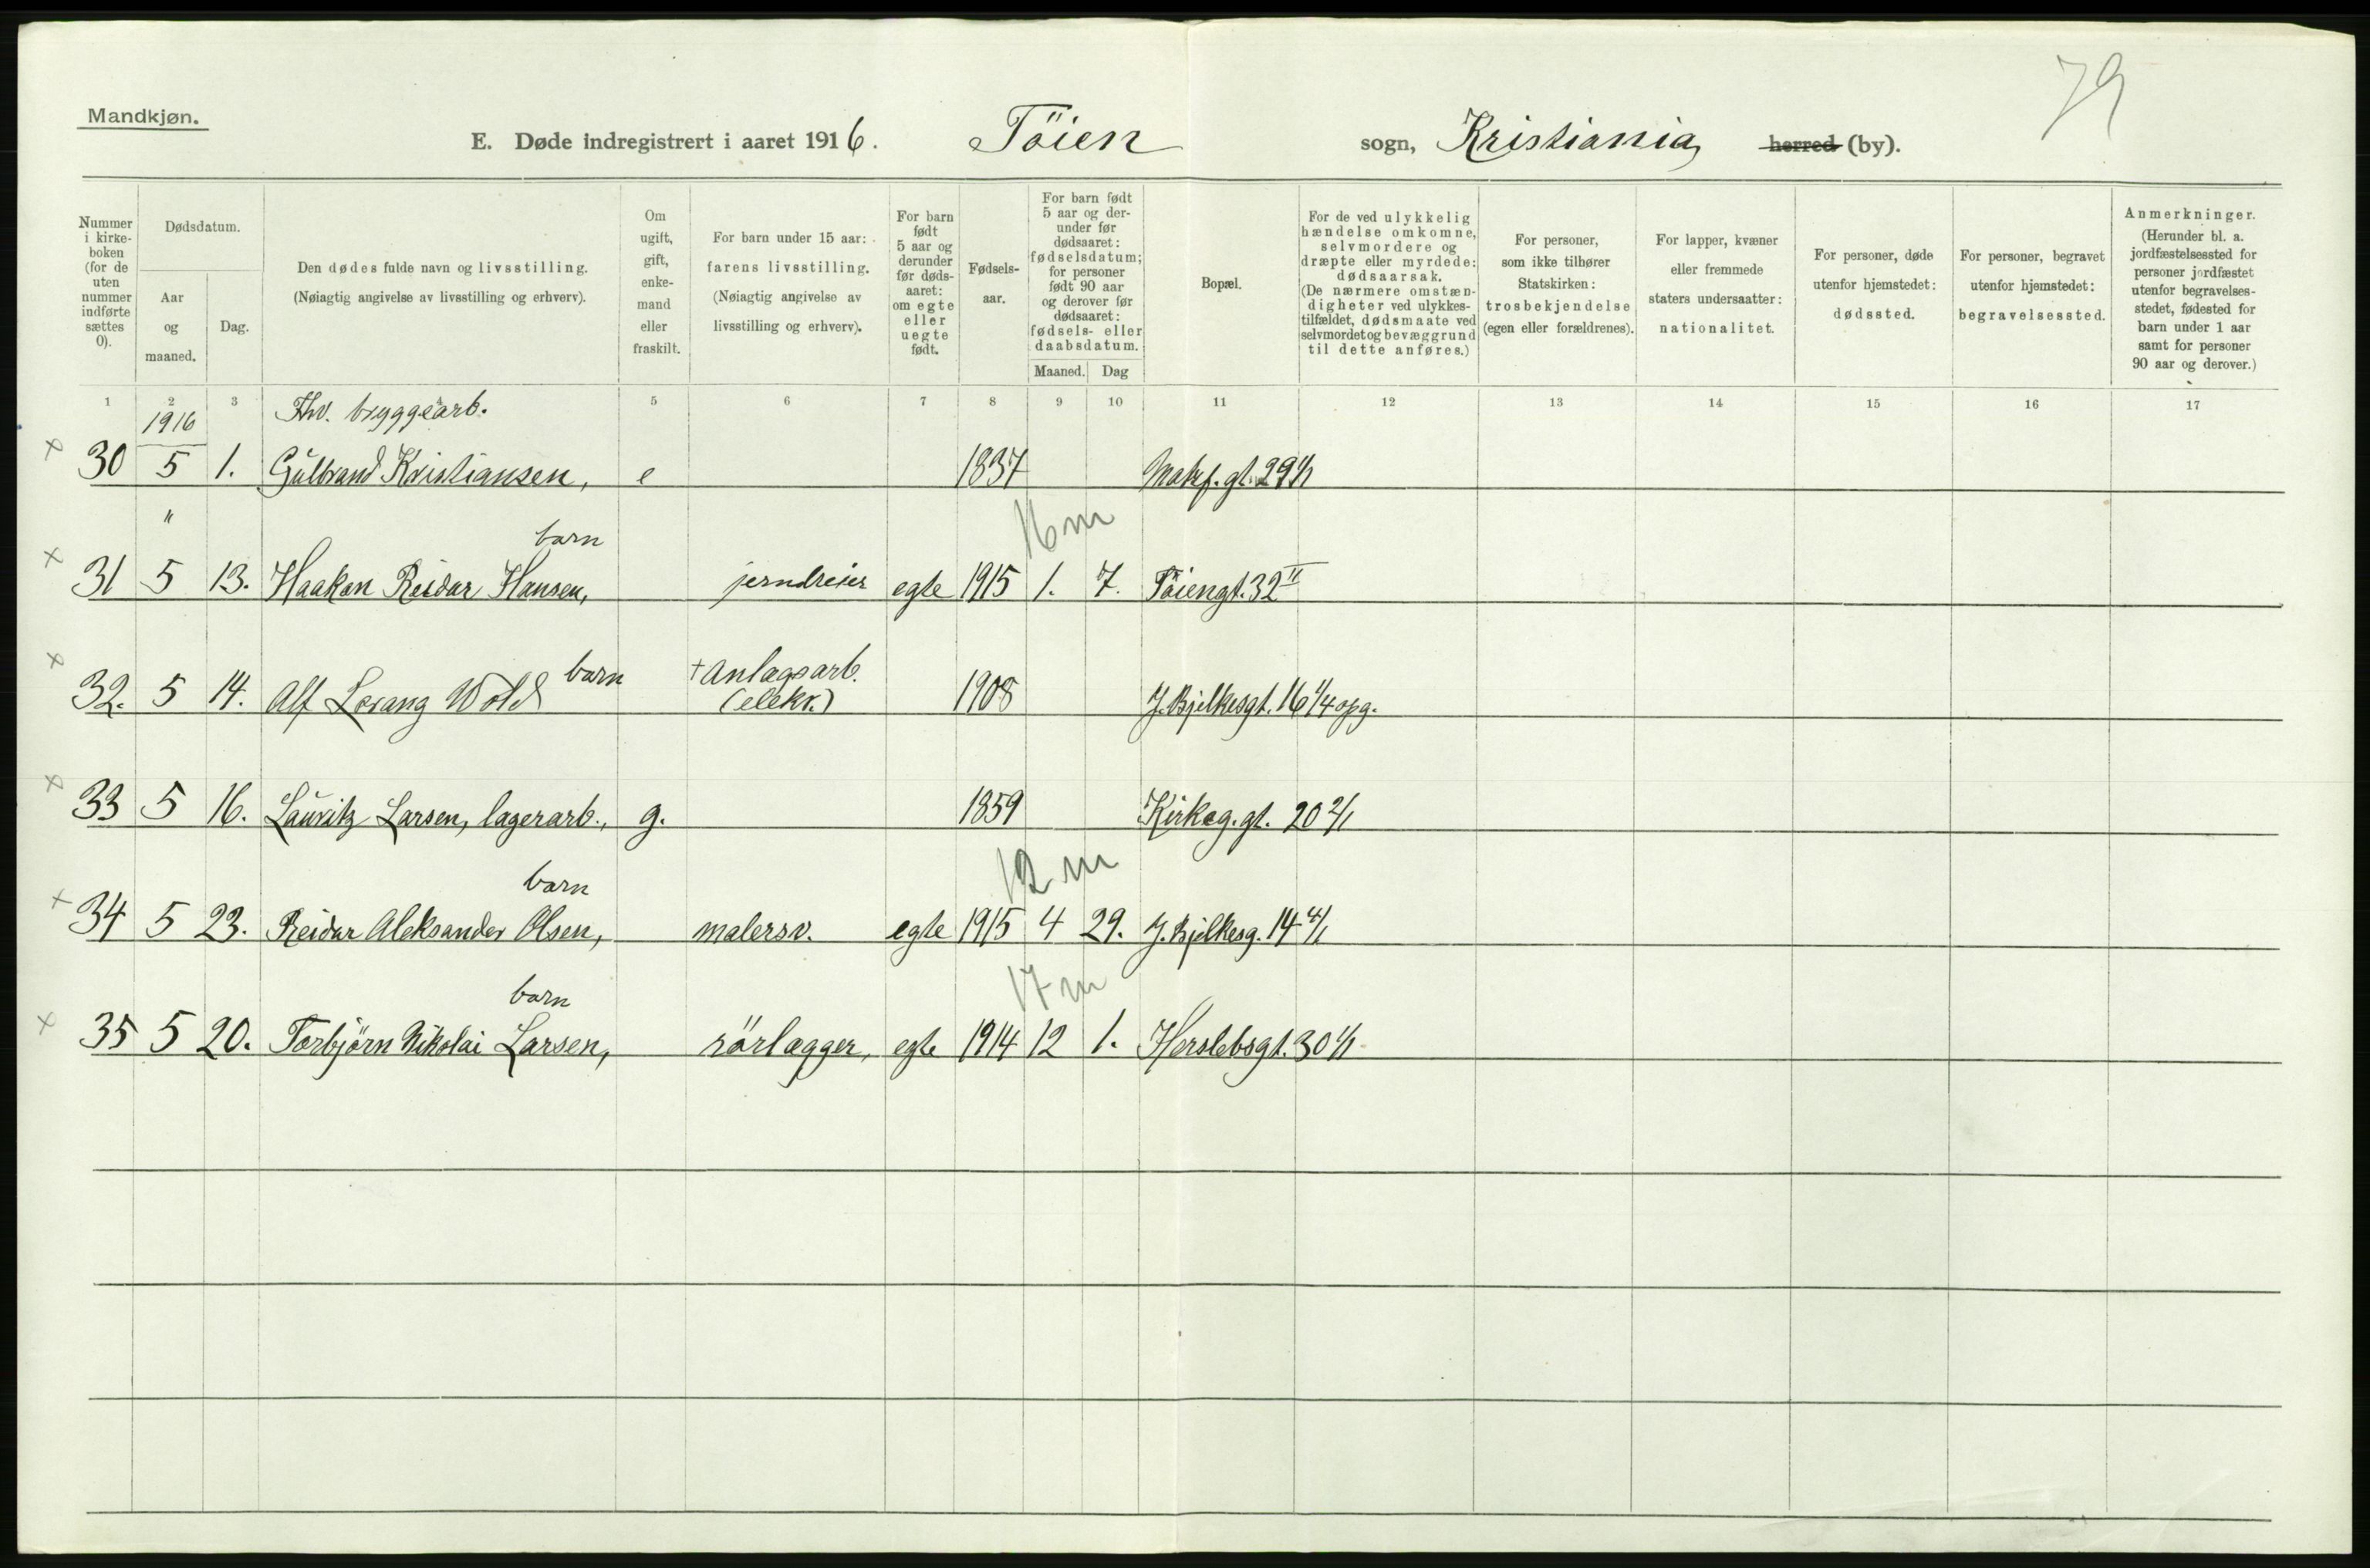 79
Mandkjøn.
E. Døde indregistrert i aaret 1916. Töien sogn, Kristiania, herred (by).
Nummer i kirkeboken (for de uten nummer indførte sættes 0).
Dødsdatum.
Aar og maaned.
Dag.
Den dødes fulde navn og livsstilling.
(Nøiagtig angivelse av livsstilling og erhverv).
Om ugift, gift, enkemand eller fraskilt.
For barn under 15 aar:
farens livsstilling.
(Nøiagtig angivelse av livsstilling og erhverv).
For barn født 5 aar og derunder før dødsaaret: om egte eller uegte født.
Fødselsaar.
For barn født 5 aar og derunder før dødsaaret: fødselsdatum; for personer født 90 aar og derover før dødsaaret: fødsels- eller daabsdatum.
Maaned.
Dag
Bopæl.
For de ved ulykkelig hændelse omkomne, selvmordere og dræpte eller myrdede: dødsaarsak.
(De nærmere omstændigheter ved ulykkestilfældet, dødsmaate ved selvmordet og bevæggrund til dette anføres.)
For personer, som ikke tilhører Statskirken: trosbekjendelse (egen eller forældrenes).
For lapper, kvæner eller fremmede staters undersaatter: nationalitet.
For personer, døde utenfor hjemstedet: dødssted.
For personer, begravet utenfor hjemstedet: begravelsessted.
Anmerkninger.
(Herunder bl. a. jordfæstelsessted for personer jordfæstet utenfor begravelsesstedet, fødested for barn under 1 aar samt for personer 90 aar og derover.)
1 2 3 4 5 6 7 8 9 10 11 12 13 14 15 16 17
1916 Fhv. bryggearb.
× 30 5 1. Gulbrand Kristiansen, e 1837
" barn 16 m
× 31 5 13. Haakon Reidar Hansen, jerndreier egte 1915 1. 7. Töiengt. 32 II
× 32. 5 14. Alf Lorang Wold barn + Anlagsarb. (elekr.) 1908 J. Bjelkesgt. 16 1/4 opg.
× 33 5 16. Lauritz Larsen, lagerarb., g. 1859 Kirkeg. gt. 20 2/1
barn 12 m
+ 34 5 23. Reidar Aleksander Olsen, malersv. egte 1915 4 29. J. Bjelkesg. 14 4/1
barn 17 m
× 35 5 20. Torbjörn Nikolai Larsen, rörlægger, egte 1914 12 1. Herslebsgt. 30 1/1